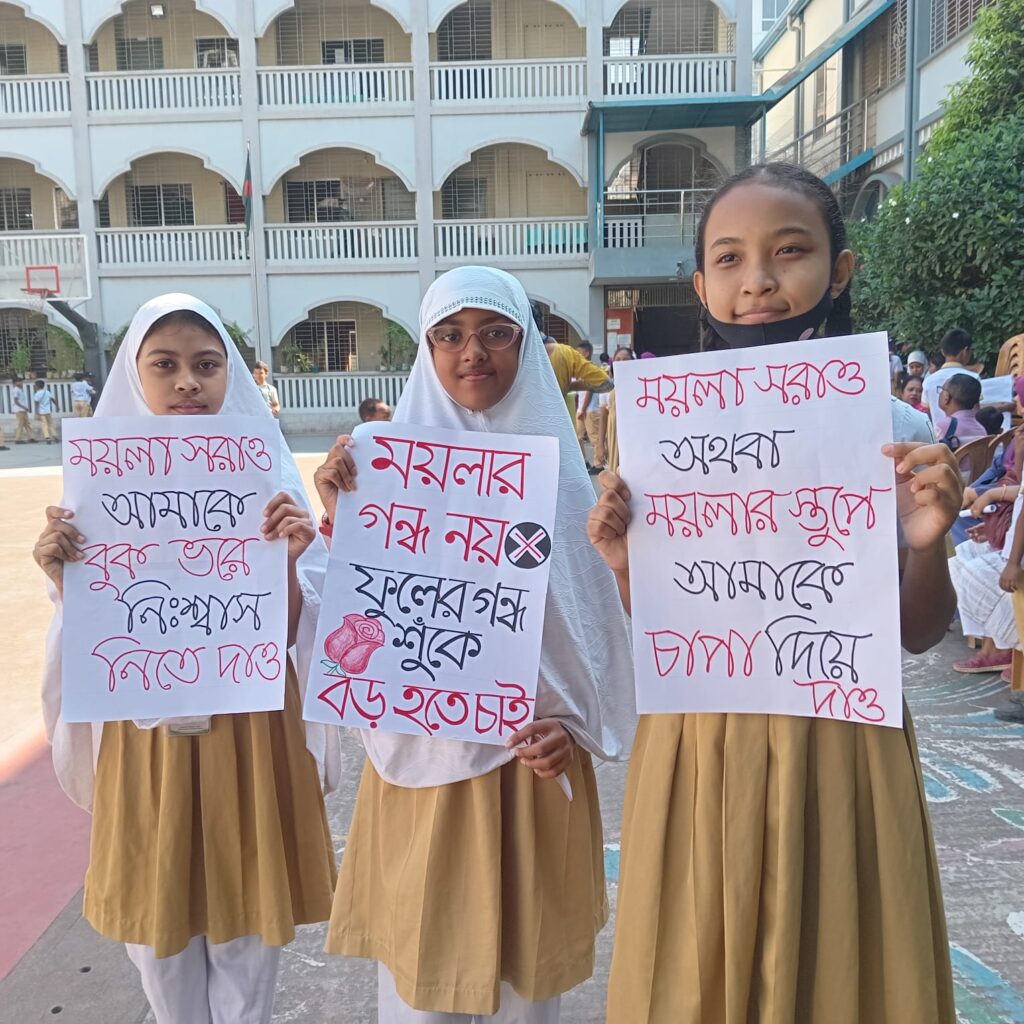 ময়লা সরাও
আমাকে
বুক ভরে
নিঃশ্বাস
নিতে দাও
ময়লার
গন্ধ নয়
ফুলের গন্ধ
শুঁকে
বড় হতে চাই
ময়লা সরাও
অথবা
ময়লার স্তুপে
আমাকে
চাপা দিয়ে
দাও